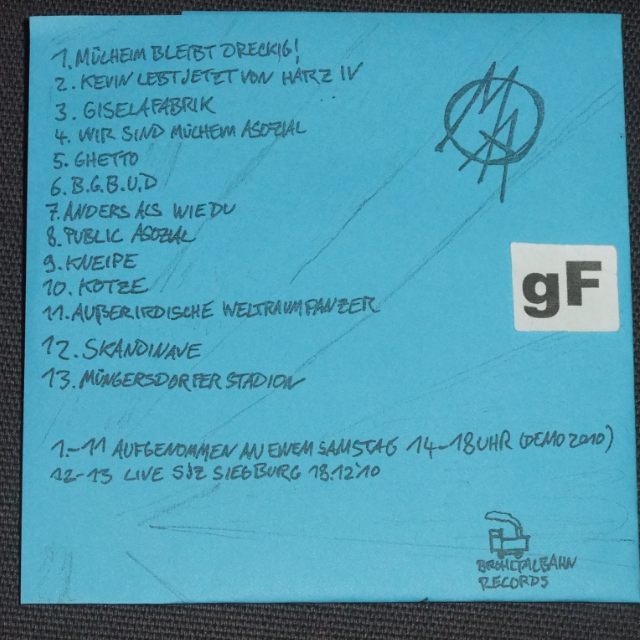 1. MÜLHEIM BLEIBT DRECKIG!
2. KEVIN LEBT JETZT VON HARZ IV
3. GISELAFABRIK
4. WIR SIND MÜLHEIM ASOZIAL
5. GHETTO
6. B.G.B.U.D
7. ANDERS ALS WIE DU
8. PUBLIC ASOZIAL
9. KNEIPE
10. KOTZE
11. AUßERIRDISCHE WELTRAUMPANZER
12. SKANDINAVE
13. MÜNGERSDORFER STADION
1.-11 AUFGENOMMEN AN EINEM SAMSTAG 14-18 UHR (DEMO 2010)
12-13 LIVE SJZ SIEGBURG 18.12'10
MA
gF
BRÖHLTALBAHN
RECORDS